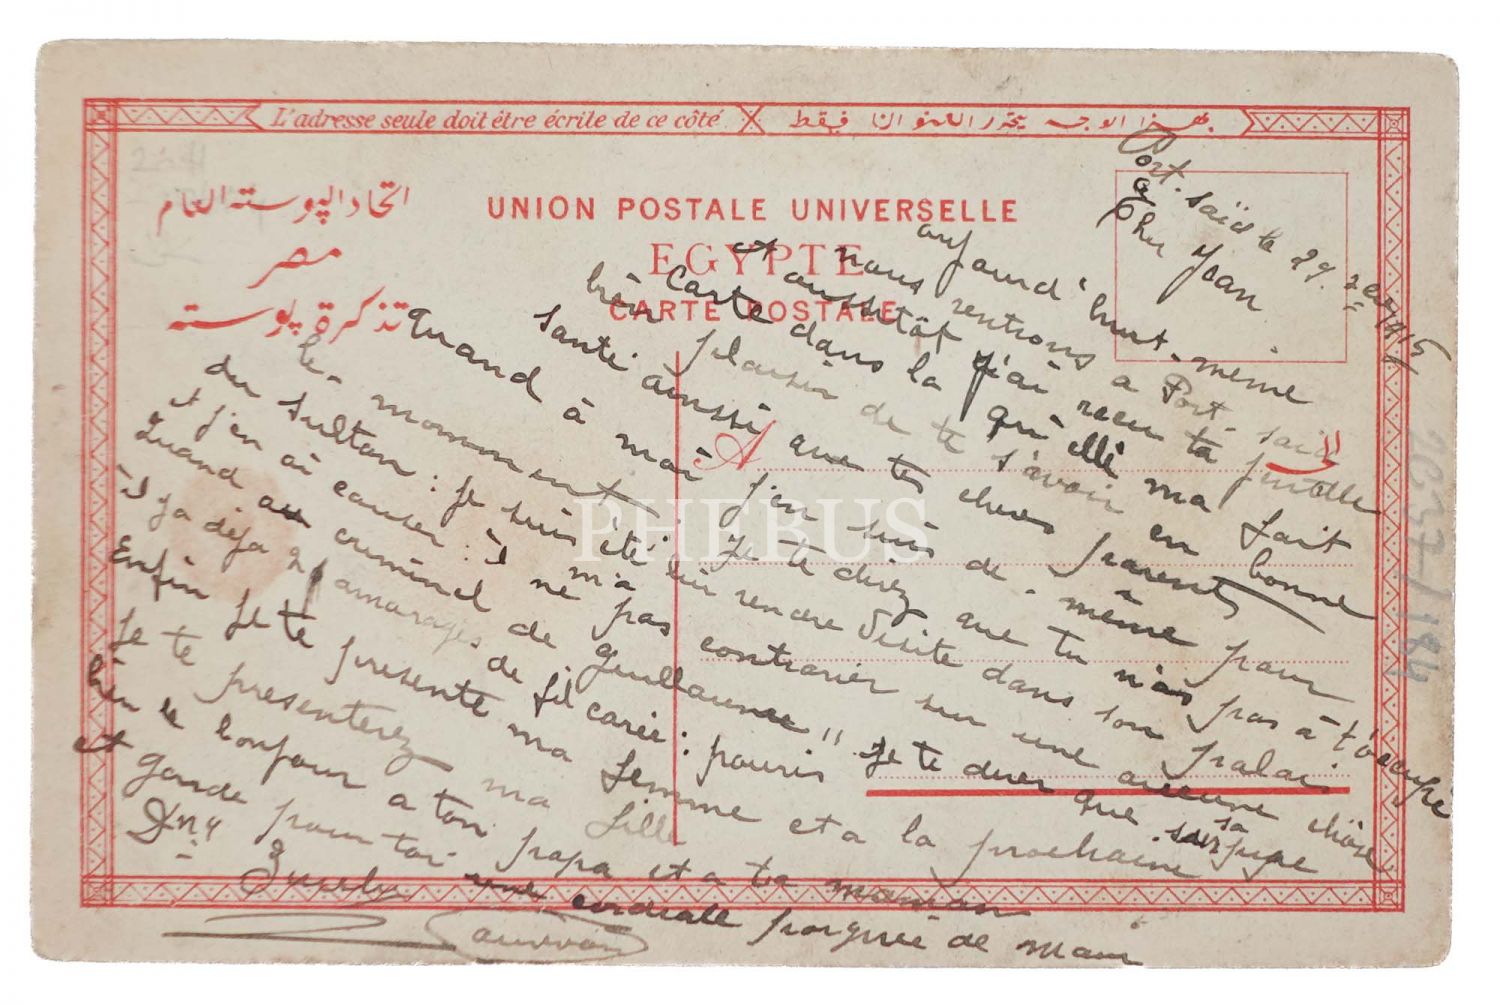 L'adresse seule doit être écrite de ce côté
بهذا الوجه يحرر العنوان فقط
اتحاد البوستة العام
مصر
تذكرة بوسته
UNION POSTALE UNIVERSELLE
EGYPTE
CARTE POSTALE
A
الى
Port-saïd le 29
Cher Jean
aujourd'hui-même
nous rentrons a Port-said
et aussitôt j'ai recu ta jinolle
Carte dans la qu'elle ma fait
bièn plaisir de te s'avoir en bonne
santé ainssi que tes chers parents
Quand à moi j'en suis de même pour
le moment. Je te direz que tu n'as pas à t'occupé
du Sultan: je suis été lui rendre visite dans son palais
et j'en ai causer: il ne m'a pas contrarier sur une aucune chôse
Quand au criminel de guillaume" Je te direz que sa
il ya déja 2 amarages de fil carée: pouris
Enfin Je te présente ma femme et a la prochaine
je te presenterez ma fille
bièn le bonjour a ton papa et a ta maman
et garde pour toi une cordiale poignée de main
PHEBUS
2637-1184